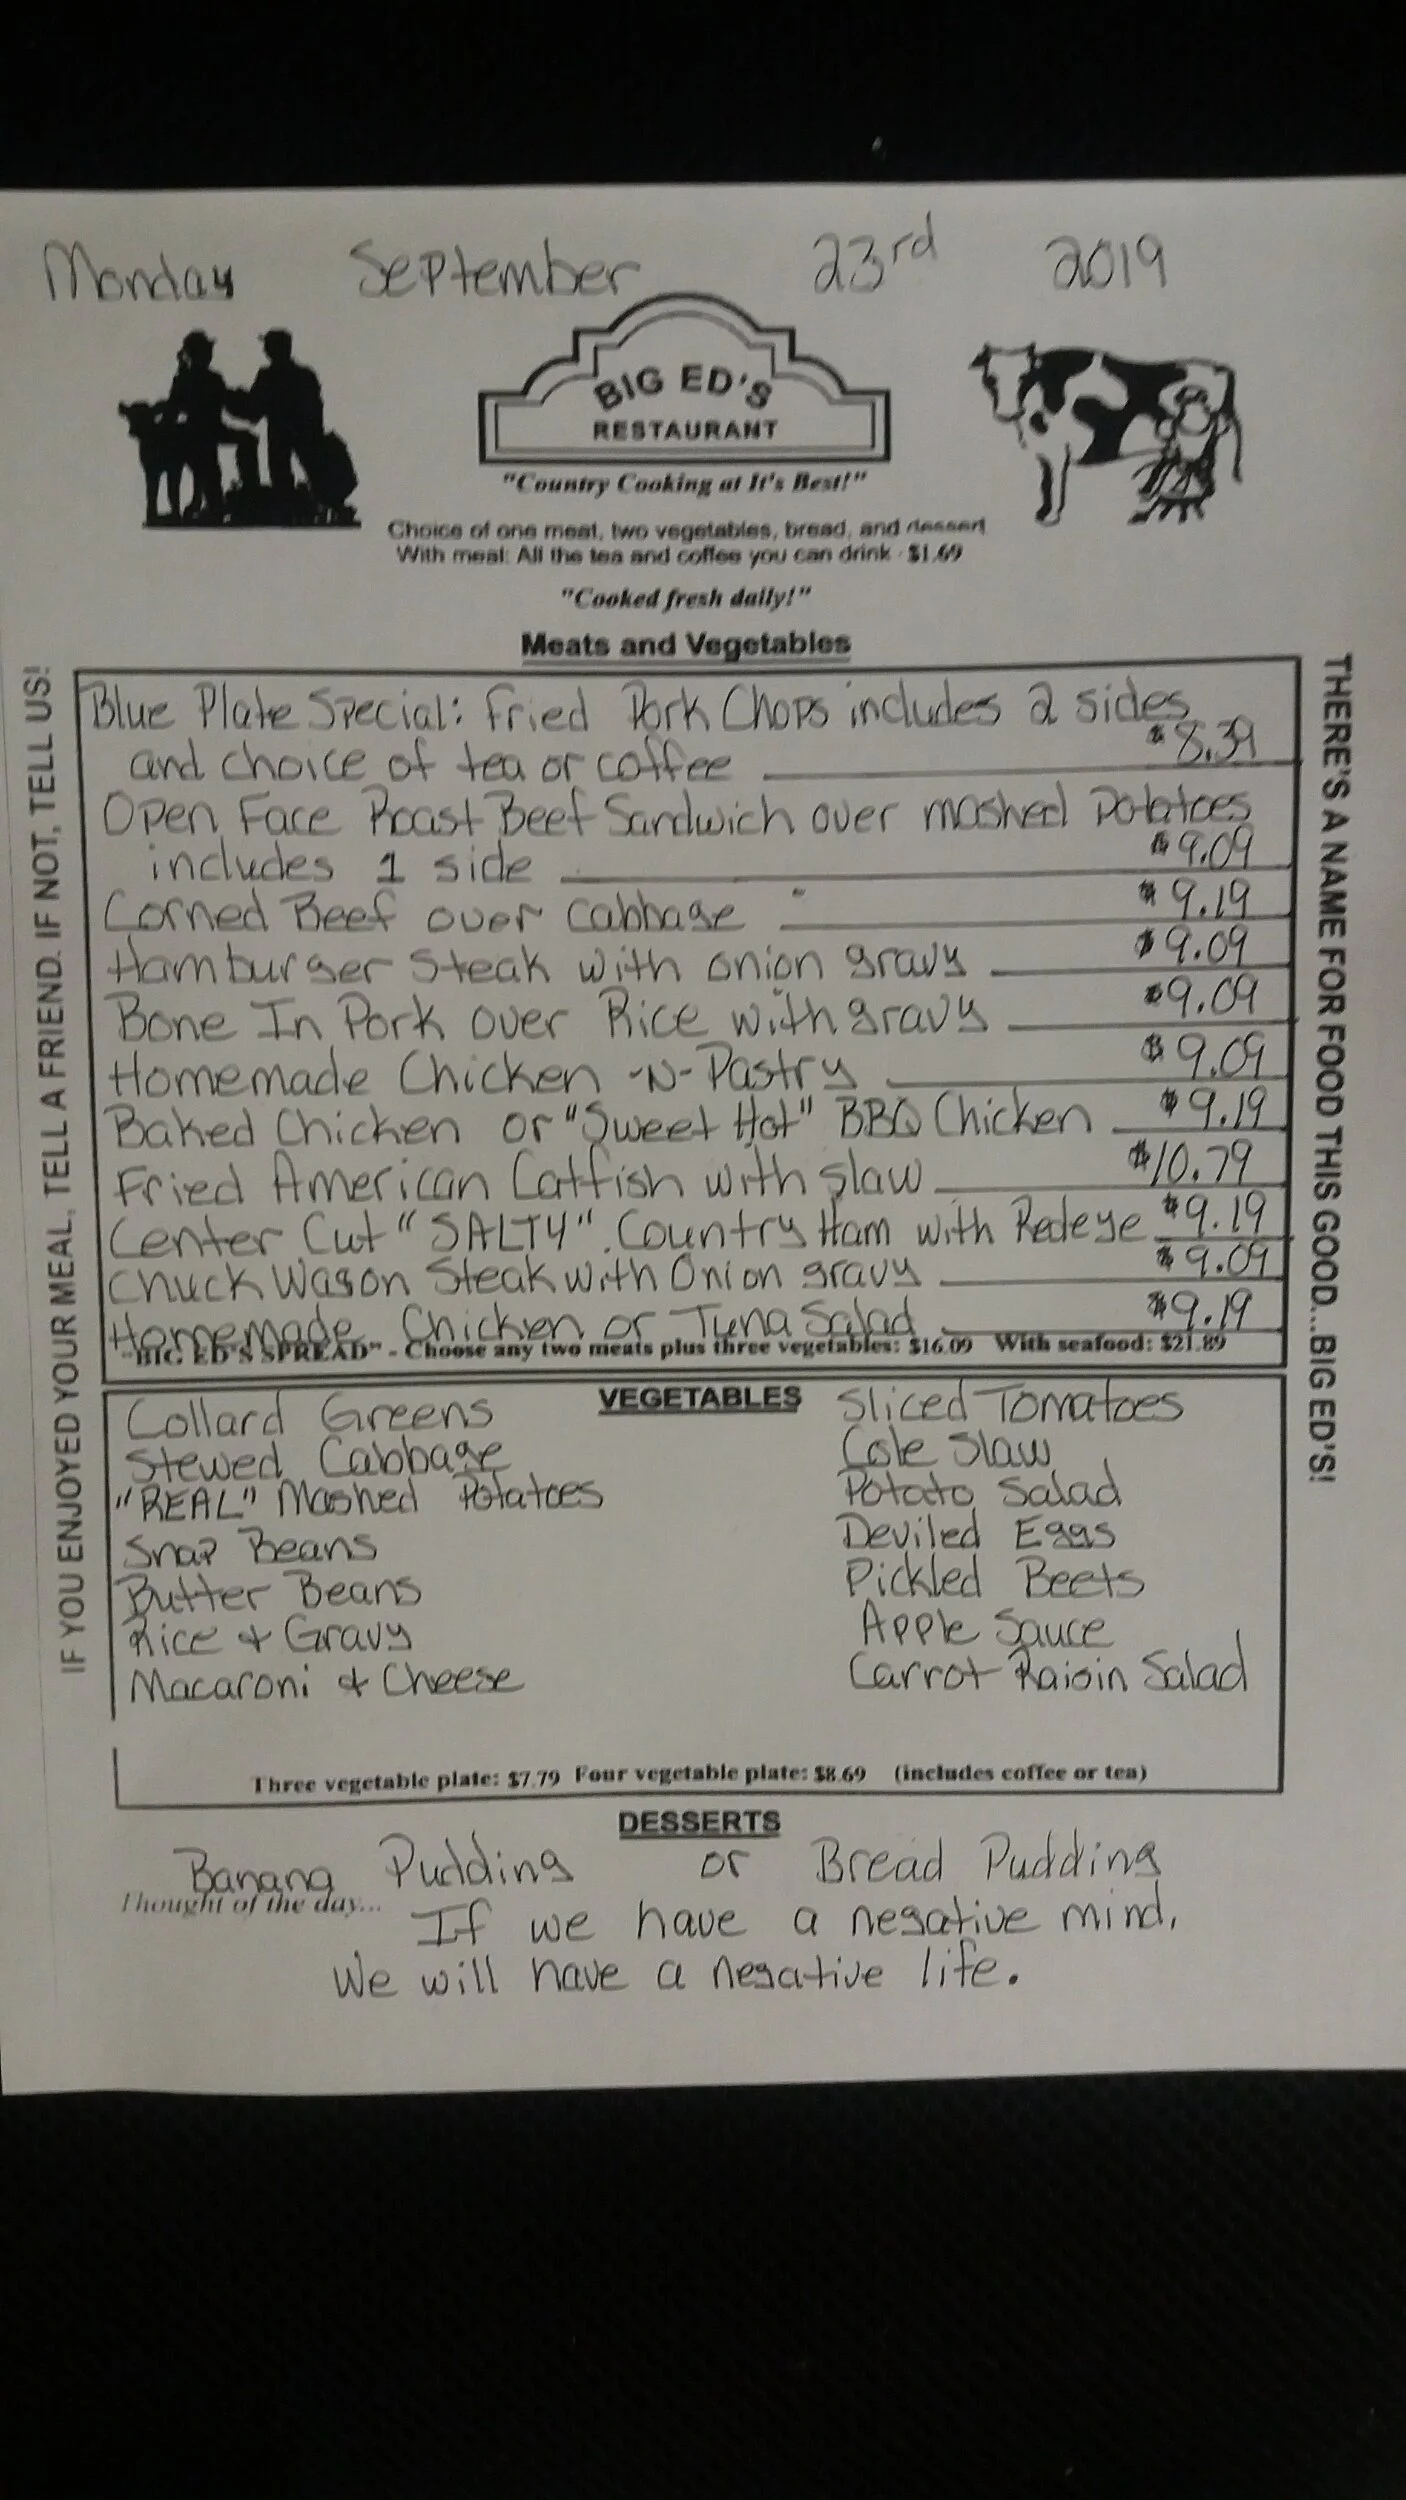 Monday September 23rd 2019
BIG ED'S
RESTAURANT
"Country Cooking at It's Best!"
Choice of one meat, two vegetables, bread, and dessert
With meal: All the tea and coffee you can drink - $1.69
"Cooked fresh daily!"
Meats and Vegetables
IF YOU ENJOYED YOUR MEAL, TELL A FRIEND. IF NOT, TELL US!
Blue Plate Special: Fried Pork Chops includes 2 sides
and choice of tea or coffee $8.39
Open Face Roast Beef Sandwich over mashed Potatoes
includes 1 side $9.09
Corned Beef over Cabbage $9.19
Hamburger Steak with onion gravy $9.09
Bone In Pork over Rice with gravy $9.09
Homemade Chicken -N- Pastry $9.09
Baked Chicken or "Sweet Hot" BBQ Chicken $9.19
Fried American Catfish with slaw $10.79
Center Cut "SALTY" Country Ham with Redeye $9.19
Chuck Wagon Steak with Onion gravy $9.09
Homemade Chicken or Tuna Salad $9.19
"BIG ED'S SPREAD" - Choose any two meats plus three vegetables: $16.09 With seafood: $21.89
THERE'S A NAME FOR FOOD THIS GOOD...BIG ED'S!
VEGETABLES
Collard Greens
Stewed Cabbage
"REAL" Mashed Potatoes
Snap Beans
Butter Beans
Rice & Gravy
Macaroni & Cheese
Sliced Tomatoes
Cole Slaw
Potato Salad
Deviled Eggs
Pickled Beets
Apple Sauce
Carrot Raisin Salad
Three vegetable plate: $7.79 Four vegetable plate: $8.69 (includes coffee or tea)
DESSERTS
Banana Pudding or Bread Pudding
Thought of the day...
If we have a negative mind,
We will have a negative life.